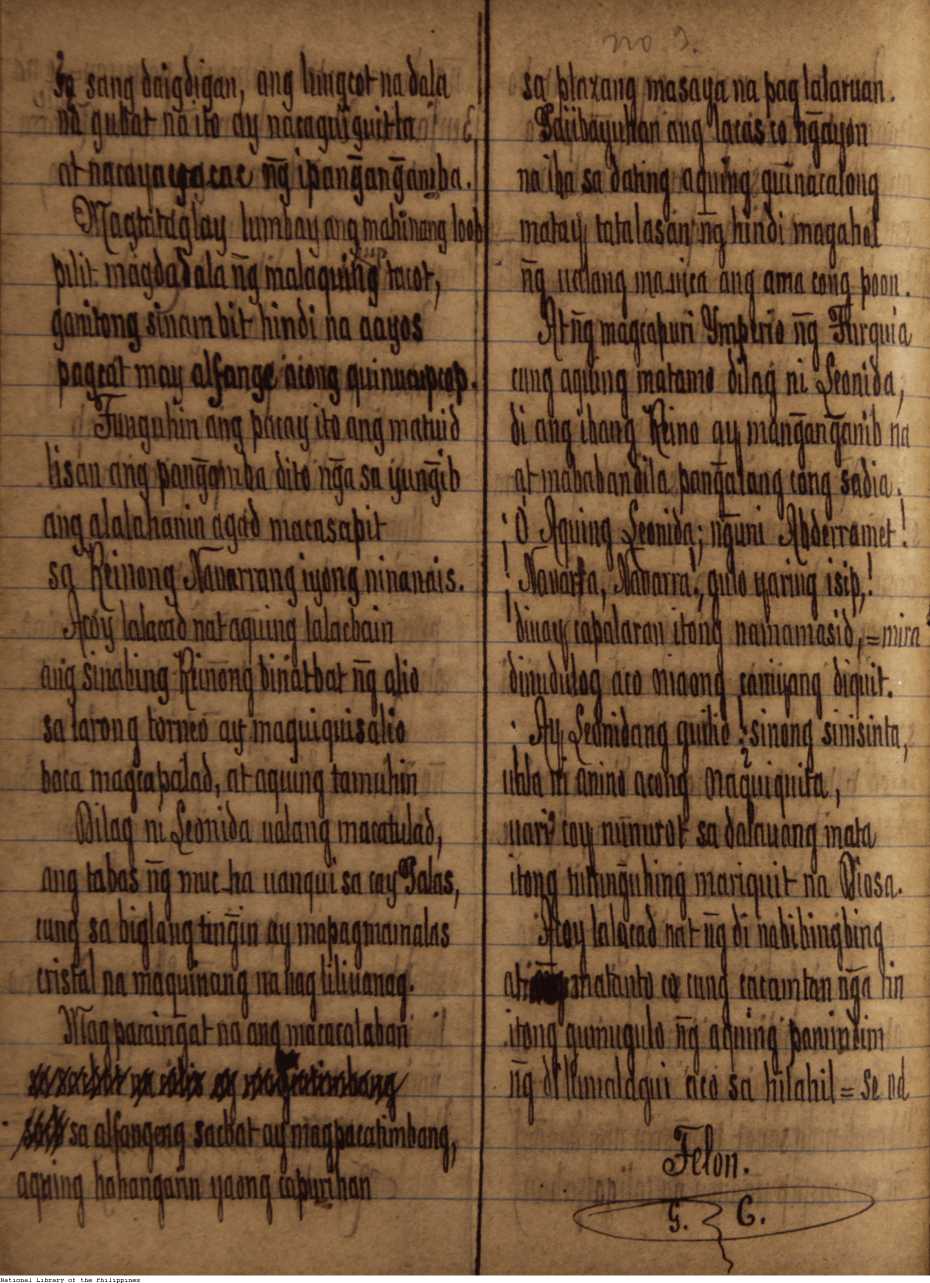 Sa sang daigdigan, ang lungcot na dala
na gubat na ito ay nacaguiguitla
at nacayayacac n̄g ipan̄gan̄gamba.
Magtataglay lumbay ang mahinang loob
pilit magdadala n̄g malaquing tacot,
ganitong sinambit hindi na aayos
pagcat may alfange acong quinucupcop.
Tunguhin ang pacay ito ang matuid
lisan ang pan̄gamba dito n̄ga sa iyun̄gib
ang alalahanin agad macasapit
sa Reinong Navarrang iyong ninanais.
Acoy lalacad nat aquing lalacbain
ang sinabing Reinong binatbat n̄g alio
sa larong torneo ay maquiquisalio
baca magcapalad, at aquing tamuhin
Dilag ni Leonida ualang macatulad,
ang tabas n̄g muc-ha uanqui sa cay Palas,
cung sa biglang tin̄gin ay mapagmamalas
cristal na maquinang na nag liliuanag.
Mag parain̄gat na ang macacalaban
sa alfangeng sacbat ay magpacatimbang,
aquing hahangarin yaong capurihan
no 3.
sa plazang masaya na pag lalaruan.
Pdiibayuhan ang lacas co n̄gayon
na iba sa dating aquing quinacalong
matay tatalasan n̄g hindi magahol
n̄g ualang ang ama cong poon.
At n̄g magcapuri Ymperio n̄g Turquia
cung aquing matamo dilag ni Leonida,
di ang ibang Reino ay man̄gan̄ganib na
at mababandila pan̄galang cong sadia.
¡O Aquing Leonida; n̄guni Abderramet!
¡Navarra, Navarra, gulo yaring isip,!
dinay capalaran itong namamasid, = mira
dinudulog aco niaong camiyang diquit.
Ay Leonidang guilio ¿sinong sinisinta,
uala ni anino acong naquiquita,
uari coy nunurot sa dalauang mata
itong tutun̄guhing mariquit na Diosa.
Acoy lalacad nat n̄g di nabibingbing
at matanto co cung cacamtan n̄ga rin
itong gumugulo n̄g aquing panimdim
n̄g di lumalagui aco sa hilahil = se vd
Felon.
G. C.
National Library of the Philippines